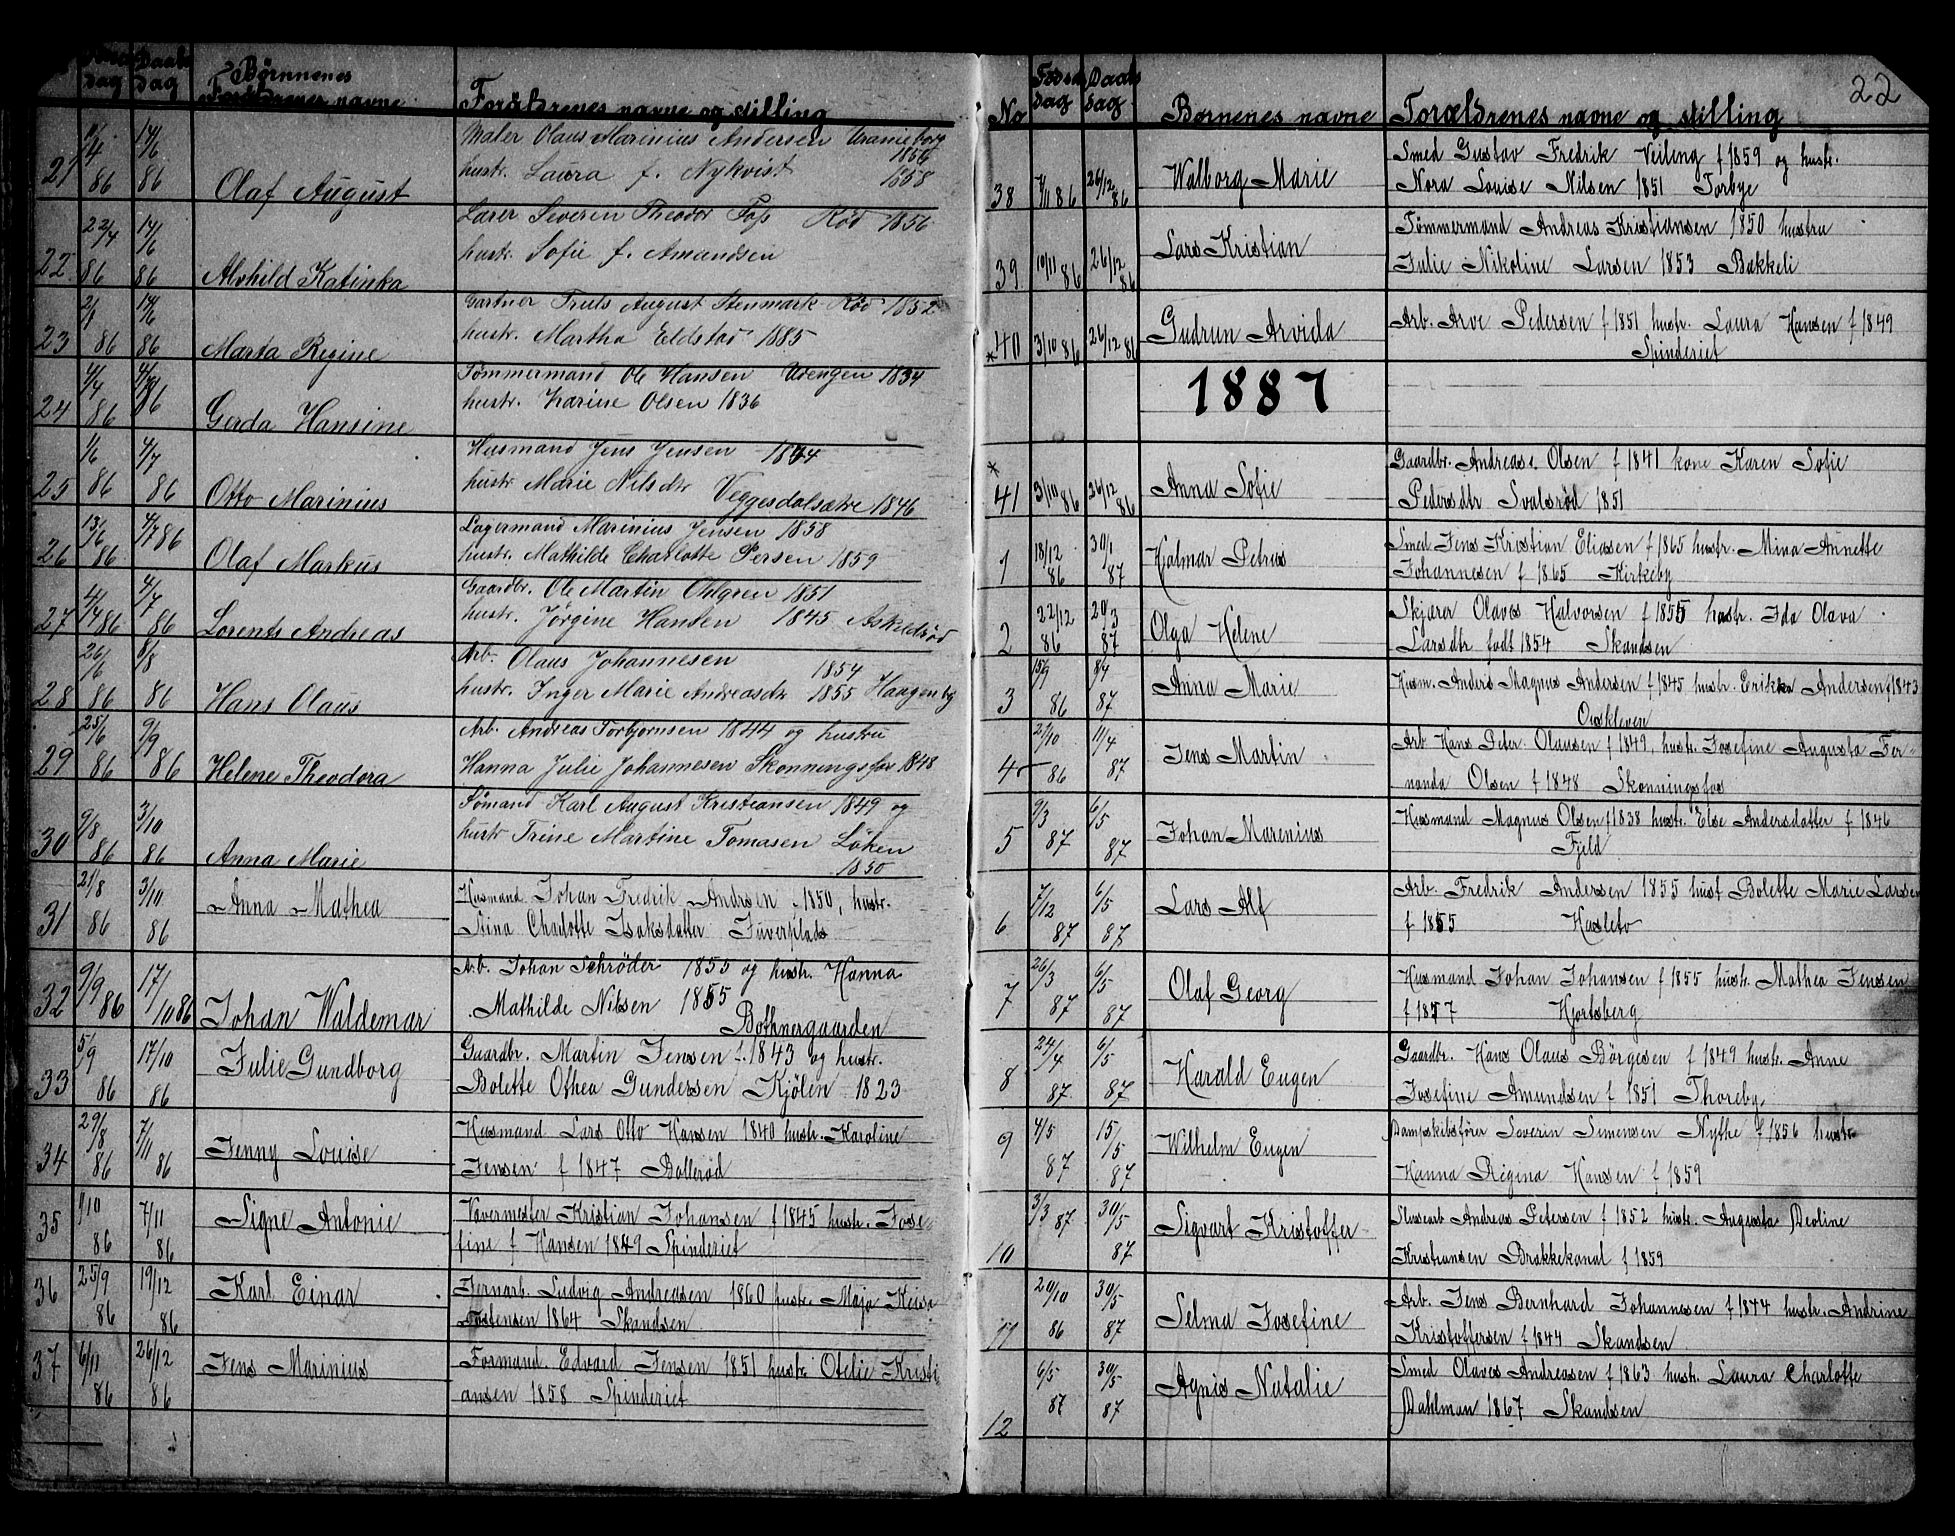 22
Daabs
dag dag
Børnnenes
Forældrenes navne
Forældrenes navne og stilling
21 86 14/6 86 Olaf August
Maler Olaus Marinius Andersen Uranieborg 1856
hustr. Laura f. Nykvist 1858
22 22/4 86 14/6 86 Alvhild Katinka
Severin Theodor Foss Rød 1856
hustr. Sofie f. Amundsen
23 86 14/6 86 Marta Regine
Gartner Truls August Stenmark Rød 1852
hustr. Martha Eldstad 1885
24 4/4 86 86 Gerda Hansine
Tømmermand Ole Hansen Udengen 1834
hustr. Karine Olsen 1836
25 1/6 86 4/7 86 Otto Marinius
Husmand Jens Jensen 1844
hustr Marie Nilsdtr Veggesdalsætre 1846
26 13/6 86 4/7 86 Olaf Markus
Lagermand Marinius Jensen 1858
hustr. Mathilde Charlotte Persen 1859
27 86 4/7 86 Lorents Andreas
Gaardbr. Ole Martin Ohlgren 1851
hustr. Jørgine Hansen 1845 Askeldrød
28 26/6 86 8/8 86 Hans Olaus
Arb. Olaus Johannesen 1854
hustr. Inger Marie Andreasdtr 1855 Haagenby
29 25/6 86 9/9 86 Helene Theodora
Arb. Andreas Torbjørnsen 1844 og hustru
Hanna Julie Johannesen Skonningsfos 1848
30 9/8 86 3/10 86 Anna Marie
Sömand Karl August Kristiansen 1849 og
hustr Trine Martine Tomasen Löken
1850
31 21/8 86 3/10 86 Anna Mathea
Husmand Johan Fredrik Andrsen 1850, hustr.
Nina Charlotte Isaksdatter
32 9/9 86 17/10 86 Johan Waldemar
Arb. Johan Schrøder 1855 og hustr. Hanna
Mathilde Nilsen 1855
Bothnergaarden
33 5/9 86 17/10 86 Julie Gundborg
Gaardbr. Martin Jensen f. 1843 og hustr.
Bolette Othea Gundersen Kjölen 1823
34 29/8 86 7/11 86 Jenny Louise
Husmand Lars Otto Hansen 1840 hustr. Karoline
Jensen f 1847 Bollerød
35 1/10 86 7/11 86 Signe Antonie
Vævermester Kristian Johansen f 1845 hustr. Jose
fine f Hansen 1849 Spinderiet
36 25/9 86 19/12 86 Karl Einar
Jernarb. Ludvig Andreasen 1860 hustr. Maja
1864 Skandsen
37 6/11 86 26/12 86 Jens Marinius
Formand Edvard Jensen 1851 hustr Otelie Kristi
ansen 1858 Spinderiet
No Fødsels dag Daabs dag Børnenes navne Forældrenes navne og stilling
38 7/11 86 26/12 86 Walborg Marie
Smed Gustav Fredrik Veileng f 1859 og hustr.
Nora Louise Nilsen 1851 Torbye
39 10/11 86 26/12 86 Lars Kristian
Tømmermand Andreas Kristiansen 1850 hustru
Julie Nikoline Larsen 1853 Bakkeli
*40 3/10 86 26/12 86 Gudrun Arvida
Arb. Arve Pedersen f 1851 hustr. Laura Hansen f 1849
Spinderiet
1887
*
41 3/10 86 26/12 86 Anna Sofie
Gaardbr. Andreas Olsen f 1841 kone Karen Sofie
Pedersdtr Svalsrød 1851
1 18/12 86 30/1 87 Halmar Petrus
Smed Jens Kristian Eliasen f 1865 hustr. Mina Annette
Johannesen f 1865 Kirkeby
2 22/12 86 20/3 87 Olga Helene
Skjærer Olaves Halvorsen f 1855 hustr. Ida Olava
Larsdtr født 1854 Skandsen
3 15/9 86 87 Anna Marie
Husm. Anders Magnus Andersen f 1845 hustr. Erikka Andersen f 1843
Oxekleven
4 21/10 86 11/4 87 Jens Martin
Arb Hans Peter Olausen f 1849, hustr. Josefine Augusta Fer-
nanda Olsen f 1848 Skonningsfos
5 9/3 87 6/5 87 Johan Marenius
Husmand Magnus Olsen f 1838 hustr. Else Andersdatter f 1846
Fjeld
6 7/12 87 6/5 87 Lars Alf
Arb. Fredrik Andersen 1855 hust Bolette Marie Larsen
f 1855 Hasleto
7 26/3 87 6/5 87 Olaf Georg
Husmand Johan Johansen f 1855 hustr. Mathea Jensen
f 1857 Hjortsberg
8 24/4 87 6/5 87 Harald Eugen
Gaardbr. Hans Olaus Börgesen f 1849 hustr. Anne
Josefine Amundsen f 1851 Thoreby
9 4/5 87 15/5 87 Wilhelm Eugen
Dampskibsfører Severin Simensen Nythe f 1856 hustr
Hanna Regina Hansen f 1859
10 3/3 87 30/5 87 Sigvart Kristoffer
Slusearb Andreas Petersen f 1852 hustr. Augusta Deoline
Kristiansen Brækkekanal f 1859
11 20/10 86 30/5 87 Selma Josefine
Arb. Jens Bernhard Johannesen f 1844 hustr. Andrine
Kristoffersen f 1844 Skandsen
12 6/5 87 30/5 87 Agnis Natalie
Smed Olaves Andreasen f 1863 hustr. Laura Charlotte
Dahlman 1867 Skandsen